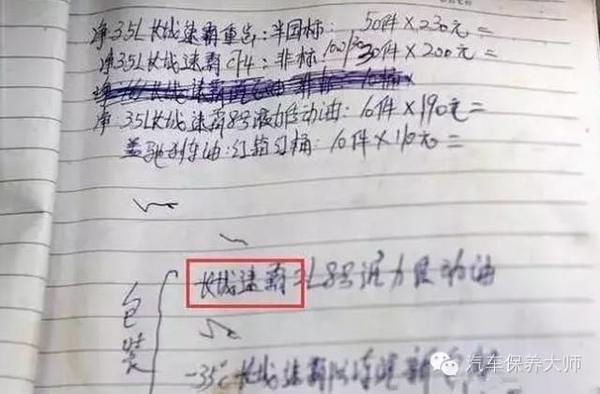 净3.5L长城速霸重负:半国标: 50件×230元=
净3.5L长城速霸CF4:非标 30件×200元=
净3.5L长城速霸8号液力传动油: 10件×190元=
盖驰刹车油:红箱 桶: 10件×110元=
包装
长城速霸 L8号液力传动油
-35℃长城速霸
汽车保养大师